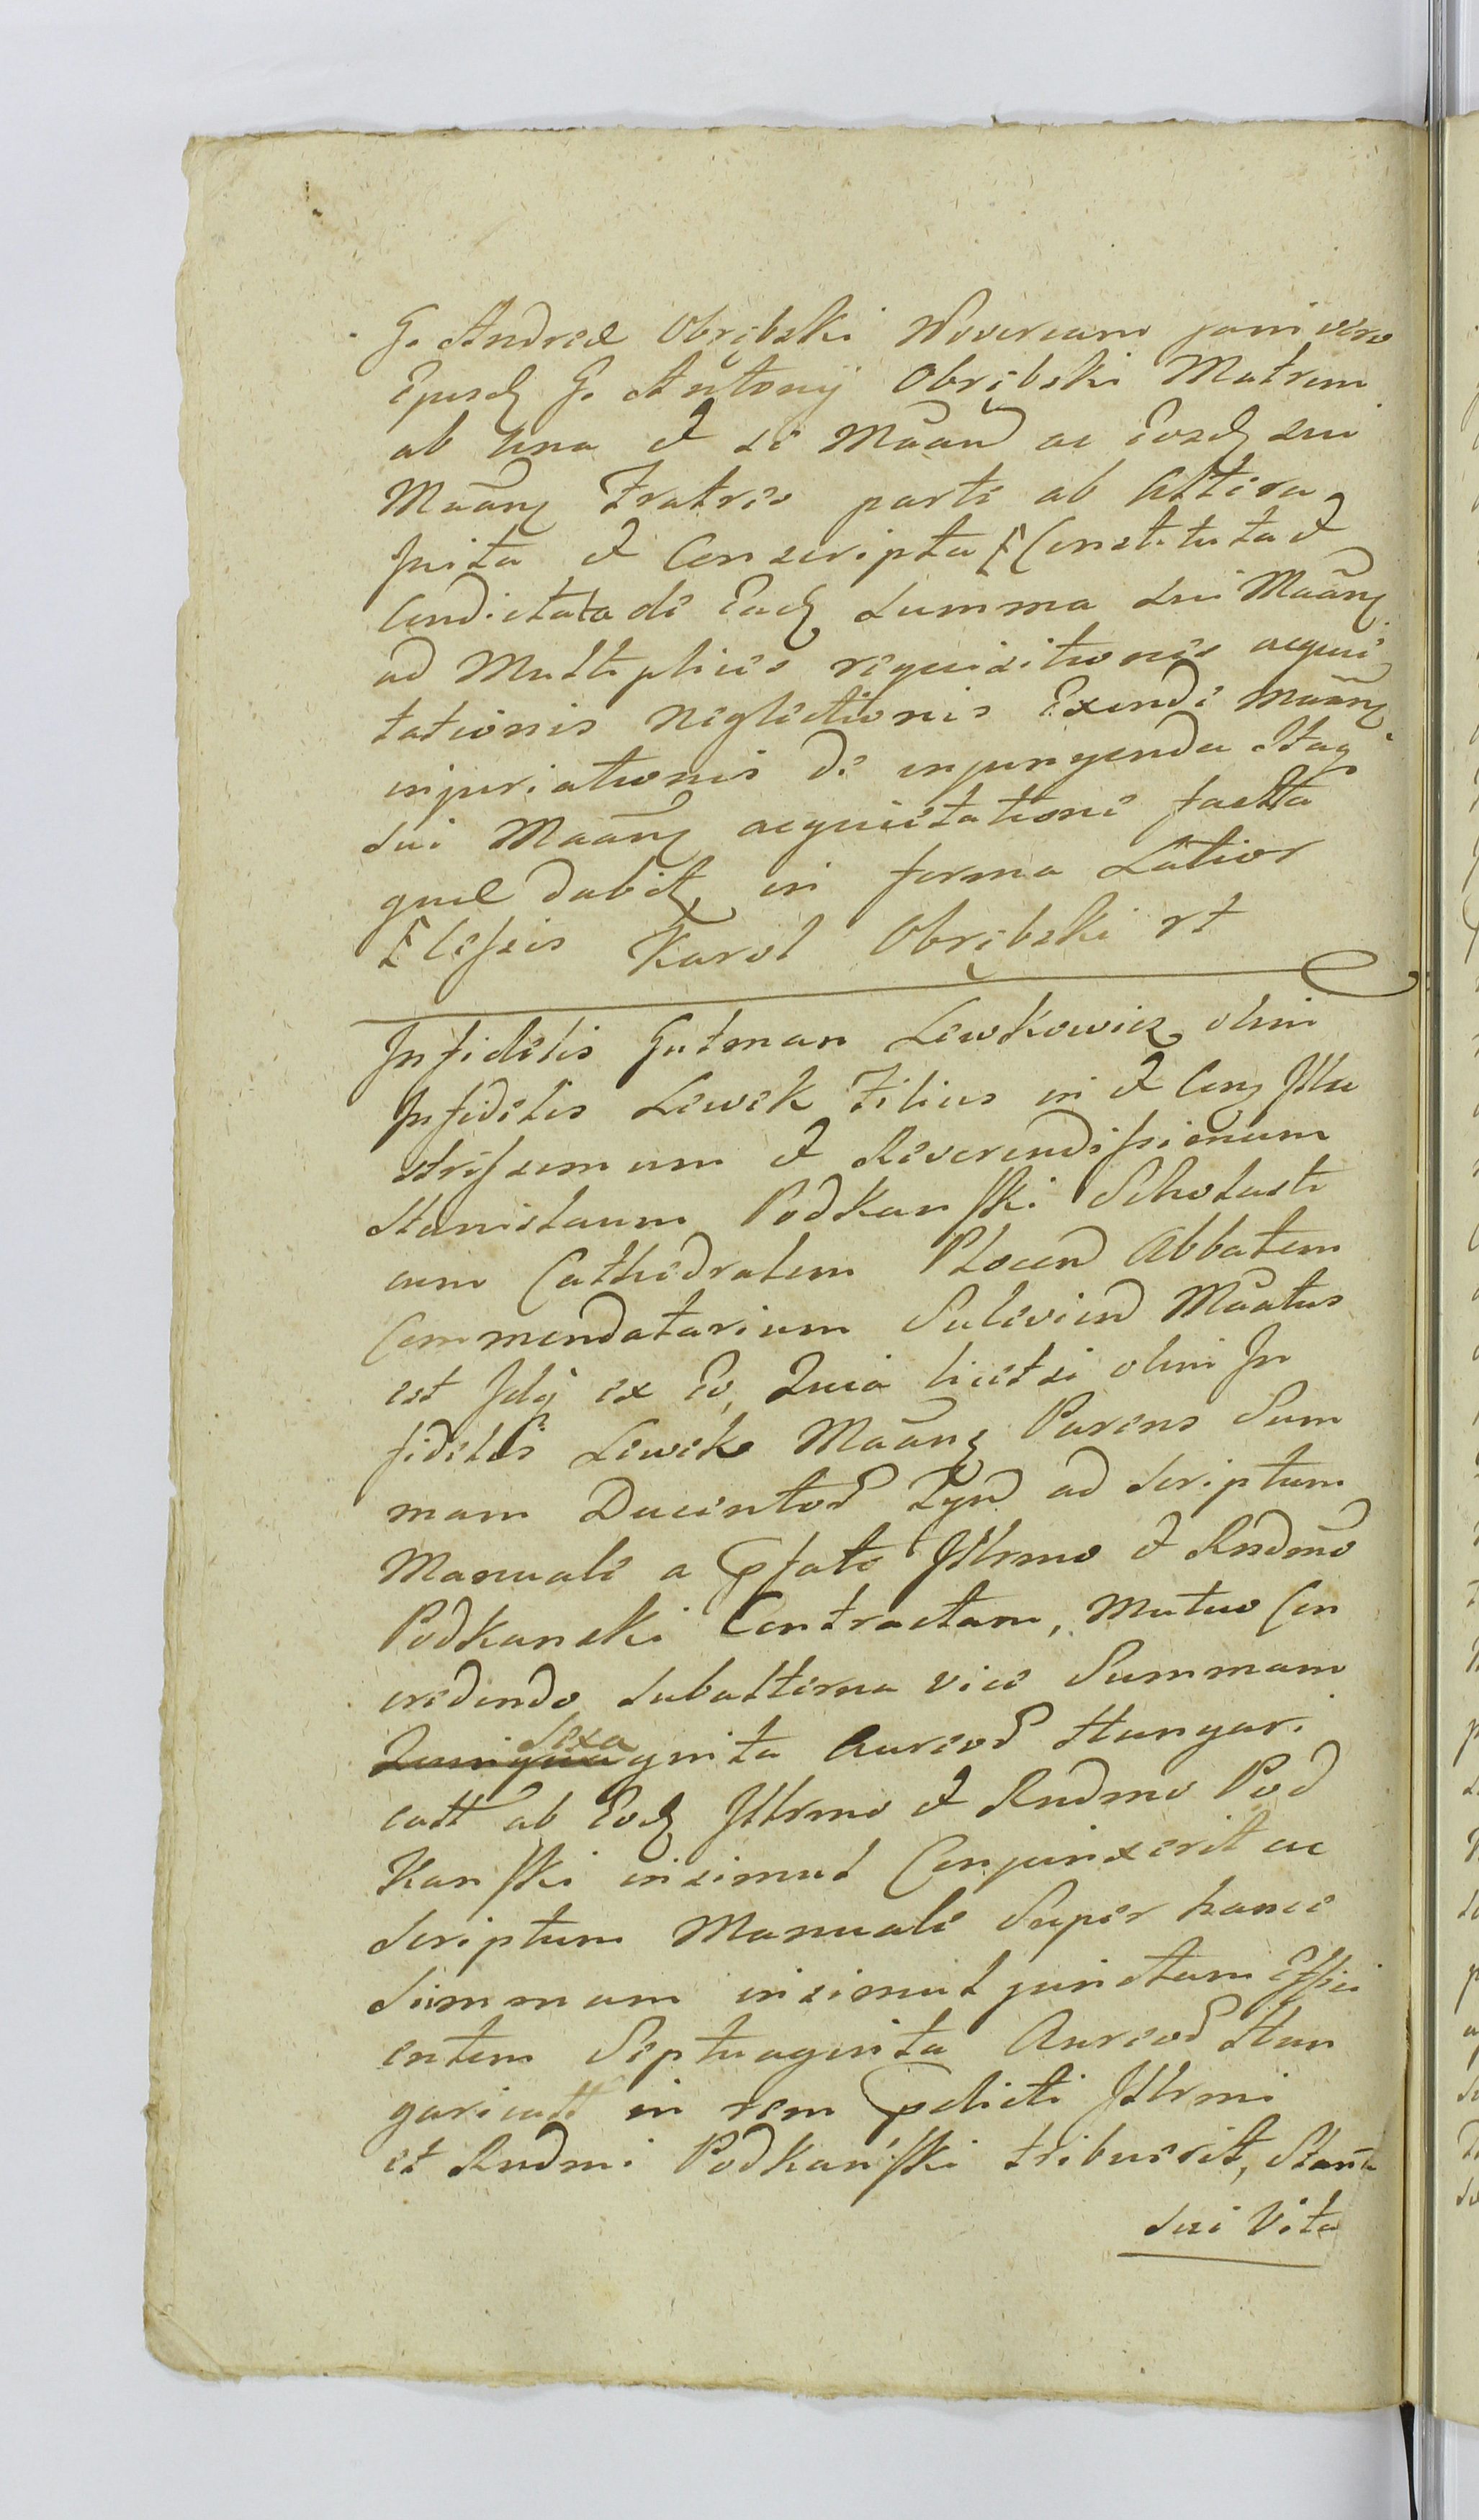 G. Andreæ Obrębski Novercam jam vero
Ejusdę G. Antonij Obrębski Matrem
ab una & se Māand ac Eosdę sui
Māanę Fratres parte ab altera
Inita & Conscripta [Constituta &
Condictata de Eadę Summa sui Māanę
ad Multiplices requisitiones acquie
tationis neglectionis Exinde Māanę
injuriationis de injungenda Itaq
sui Māanę acquietatione facta
quæ dabit, in forma Latior
[Cessis Karol Obrębski rt
Infidelis Gutman Lewkowicz olim
Infidelis Lewek Filius in & Conę Illu
strissimum & Reverendissimum
Stanislaum Podkański Scholasti
cum Cathedralem Plocend Abbatem
Commendatarium Suleviend Māatus
est Idq ex Eo, Quia licet si olim In
fidelis Lewek Māanę Parens Sum
mam Ducentor Tyn ad Scriptum
Manuale a Pfato Illrmo & Rndmo
Podkanski Contractam, Mutuo Con
credendo subalterna vice Summam
Sexa
Quinquaginta Aureor Hungari
catt ab Eodę Illrmo & Rndmo Pod
Kański insimul Conjunxerit ac
Scriptum Manuale Super hance
Summam insimul junctam Effici
entem Septuaginta Aureor Hun
garicatt in rem Pdicti Illrmi
et Rndmi Podkański tribuerit, Stanā
sui Vita